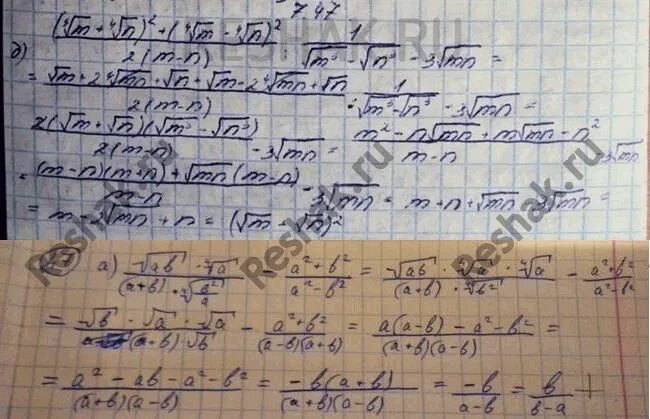 7.47
д) ((⁴√m + ⁴√n)² + (⁴√m - ⁴√n)²) / (2(m-n)) : 1 / (√m³ - √n³) - 3√mn =
= (√m + 2⁴√mn + √n + √m - 2⁴√mn + √n) / (2(m-n)) : 1 / (√m³ - √n³) - 3√mn =
2(√m + √n)(√m³ - √n³) / (2(m-n)) - 3√mn = (m² - n√mn + m√mn - n²) / (m-n) - 3√mn
= ((m-n)(m+n) + √mn (m-n)) / (m-n) - 3√mn = m + n + √mn - 3√mn =
= m - 2√mn + n = (√m - √n)²
а) (√ab · ⁴√a) / ((a+b) · ⁴√(b²/a)) - (a²+b²) / (a²-b²) = (√ab · ⁴√a · ⁴√a) / ((a+b) · ⁴√b²) - (a²+b²) / (a²-b²)
= (√b · √a · √a) / ((a+b) √b) - (a²+b²) / ((a-b)(a+b)) = (a(a-b) - a² - b²) / ((a+b)(a-b)) =
= (a² - ab - a² - b²) / ((a+b)(a-b)) = (-b(a+b)) / ((a+b)(a-b)) = (-b) / (a-b) = b / (b-a)
Reshak.ru